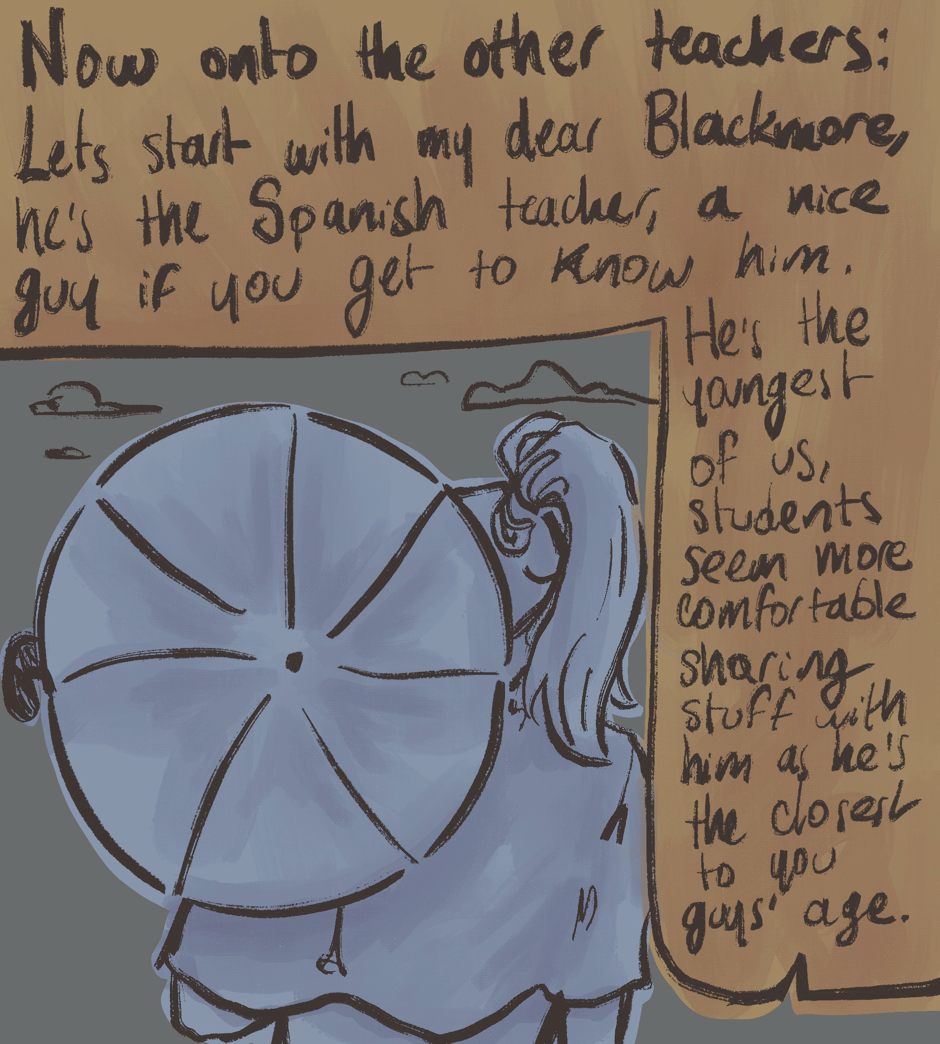 Now onto the other teachers:
Lets start with my dear Blackmore,
he's the Spanish teacher, a nice
guy if you get to know him.
He's the
youngest
of us,
students
seem more
comfortable
sharing
stuff with
him as he's
the closest
to you
guys' age.